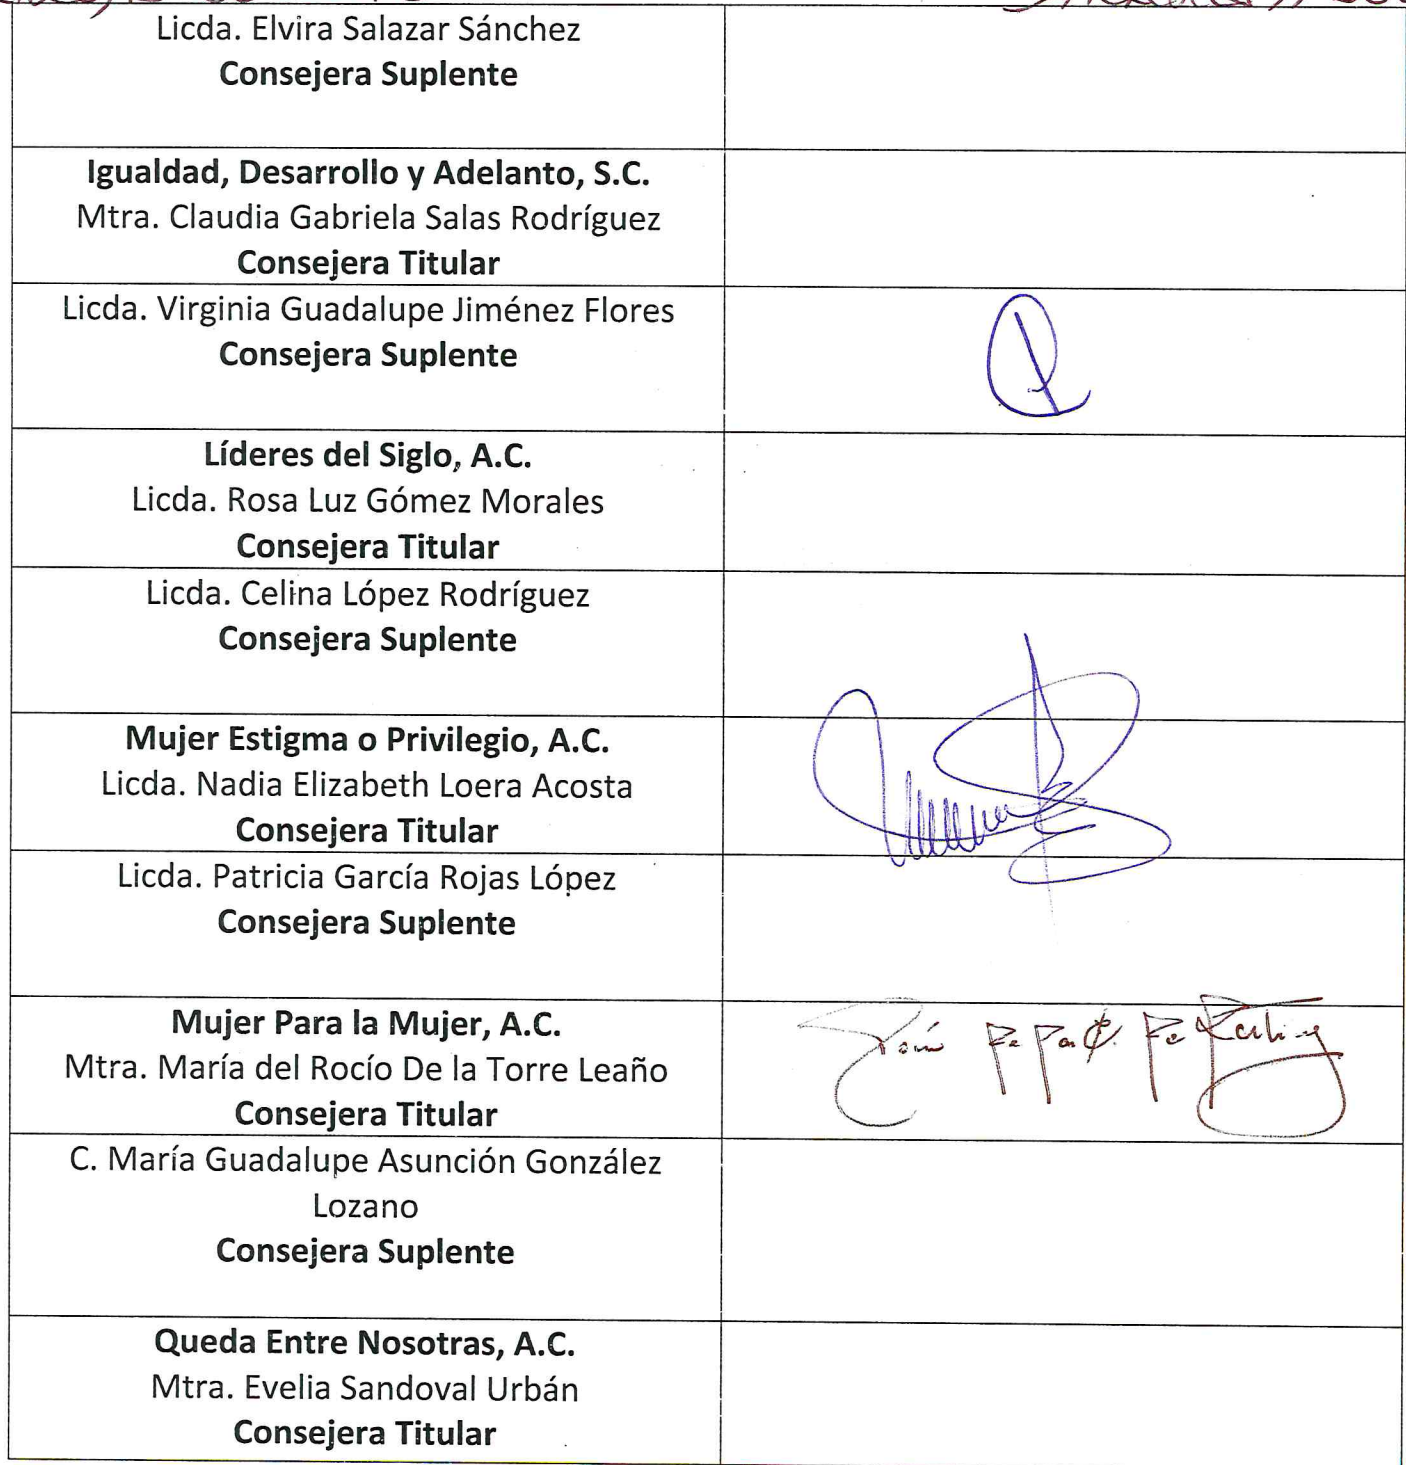 Licda. Elvira Salazar Sánchez
Consejera Suplente
Igualdad, Desarrollo y Adelanto, S.C.
Mtra. Claudia Gabriela Salas Rodríguez
Consejera Titular
Licda. Virginia Guadalupe Jiménez Flores
Consejera Suplente
Líderes del Siglo, A.C.
Licda. Rosa Luz Gómez Morales
Consejera Titular
Licda. Celina López Rodríguez
Consejera Suplente
Mujer Estigma o Privilegio, A.C.
Licda. Nadia Elizabeth Loera Acosta
Consejera Titular
Licda. Patricia García Rojas López
Consejera Suplente
Mujer Para la Mujer, A.C.
Mtra. María del Rocío De la Torre Leaño
Consejera Titular
C. María Guadalupe Asunción González
Lozano
Consejera Suplente
Queda Entre Nosotras, A.C.
Mtra. Evelia Sandoval Urbán
Consejera Titular